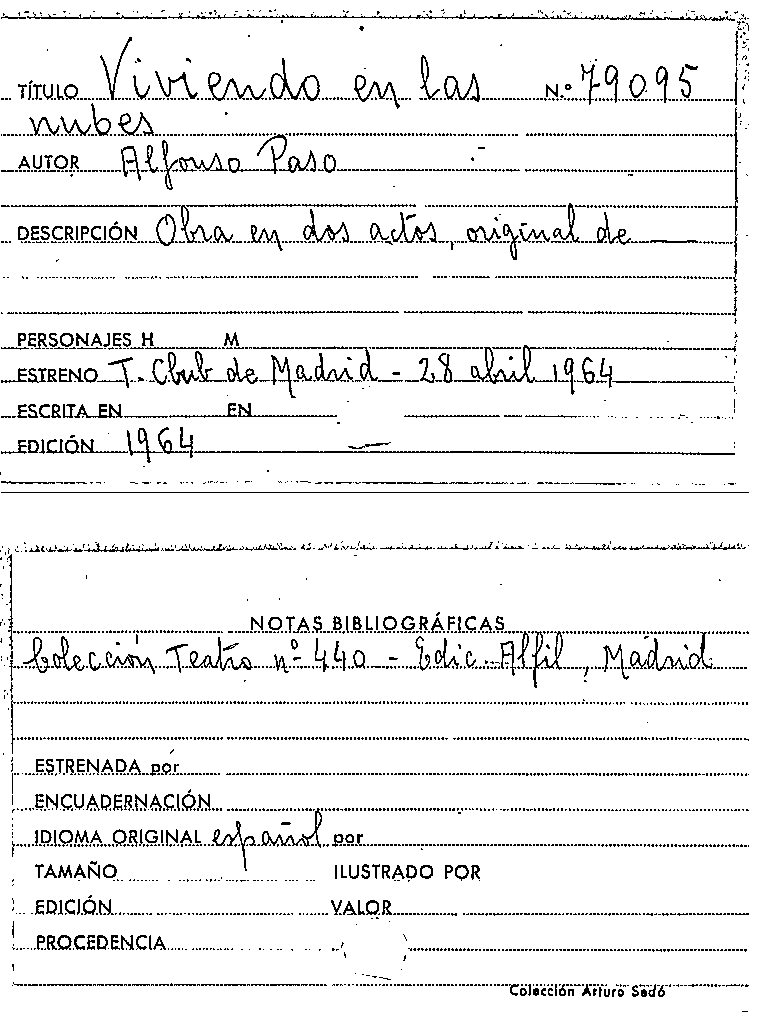 TÍTULO Viviendo en las N.º 79095
nubes
AUTOR Alfonso Paso
DESCRIPCIÓN Obra en dos actos, original de —
PERSONAJES H M
ESTRENO T. Club de Madrid - 28 abril 1964
ESCRITA EN EN
EDICIÓN 1964 —
NOTAS BIBLIOGRÁFICAS
Colección Teatro nº 440 - Edic. Alfil, Madrid
ESTRENADA por
ENCUADERNACIÓN
IDIOMA ORIGINAL español por
TAMAÑO ILUSTRADO POR
EDICIÓN VALOR
PROCEDENCIA
Colección Arturo Sedó